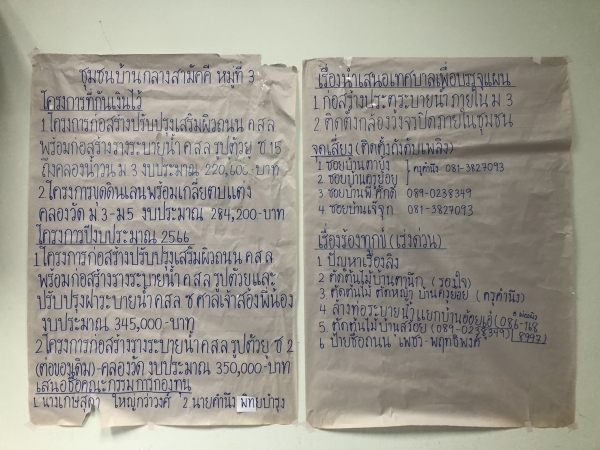 ชุมชนบ้านกลางสามัคคี หมู่ที่ 3
โครงการที่กันเงินไว้
1.โครงการก่อสร้างปรับปรุงเสริมผิวถนน คสล
พร้อมก่อสร้างรางระบายน้ำ คสล รูปตัวยู ซ 15
ถึงคลองน้ำวน ม 3 งบประมาณ 220,600.-บาท
2.โครงการขุดดินเลนพร้อมเกลี่ยตบแต่ง
คลองวัด ม.3-ม5 งบประมาณ 284,200-บาท
โครงการปีงบประมาณ 2566
1.โครงการก่อสร้างปรับปรุงเสริมผิวถนน คสล
พร้อมก่อสร้างรางระบายน้ำ คสล รูปตัวยูและ
ปรับปรุงฝาระบายน้ำ คสล ซ ศาลเจ้าสองพี่น้อง
งบประมาณ 345,000-บาท
2.โครงการก่อสร้างรางระบายน้ำ คสล รูปตัวยู ซ 2
(ต่อของเดิม)-คลองวัด งบประมาณ 350,000-บาท
เสนอชื่อคณะกรรมการกองทุน
1.นางเกษสุดา ใหญ่กว่าวงศ์ 2 นายคำนึง พิทยบำรุง
เรื่องนำเสนอเทศบาลเพื่อบรรจุแผน
1 ก่อสร้างประตูระบายน้ำภายใน ม 3
2 ติดตั้งกล้องวงจรปิดภายในชุมชน
จุดเสี่ยง (ติดตั้งถังดับเพลิง)
1 ซอยบ้านตาบุ๋ง
2 ซอยบ้านครูย้อย ครูคำนึง 081-3827093
3 ซอยบ้านพี่ศักดิ์ 089-0238349
4 ซอยบ้านเจ๊จุก 081-3827093
เรื่องร้องทุกข์ (เร่งด่วน)
1 ปัญหาเรื่องลิง
2 ตัดต้นไม้บ้านตานึก (รองใจ)
3 ตัดต้นไม้ ตัดหญ้า บ้านครูย้อย (ครูคำนึง)
4 ล้างท่อระบายน้ำแยกบ้าน (086-168
8992)
5 ตัดต้นไม้บ้านสร้อย (089-0238349)
6 ป้ายชื่อถนน "เพชร-พฤทธิพงศ์"